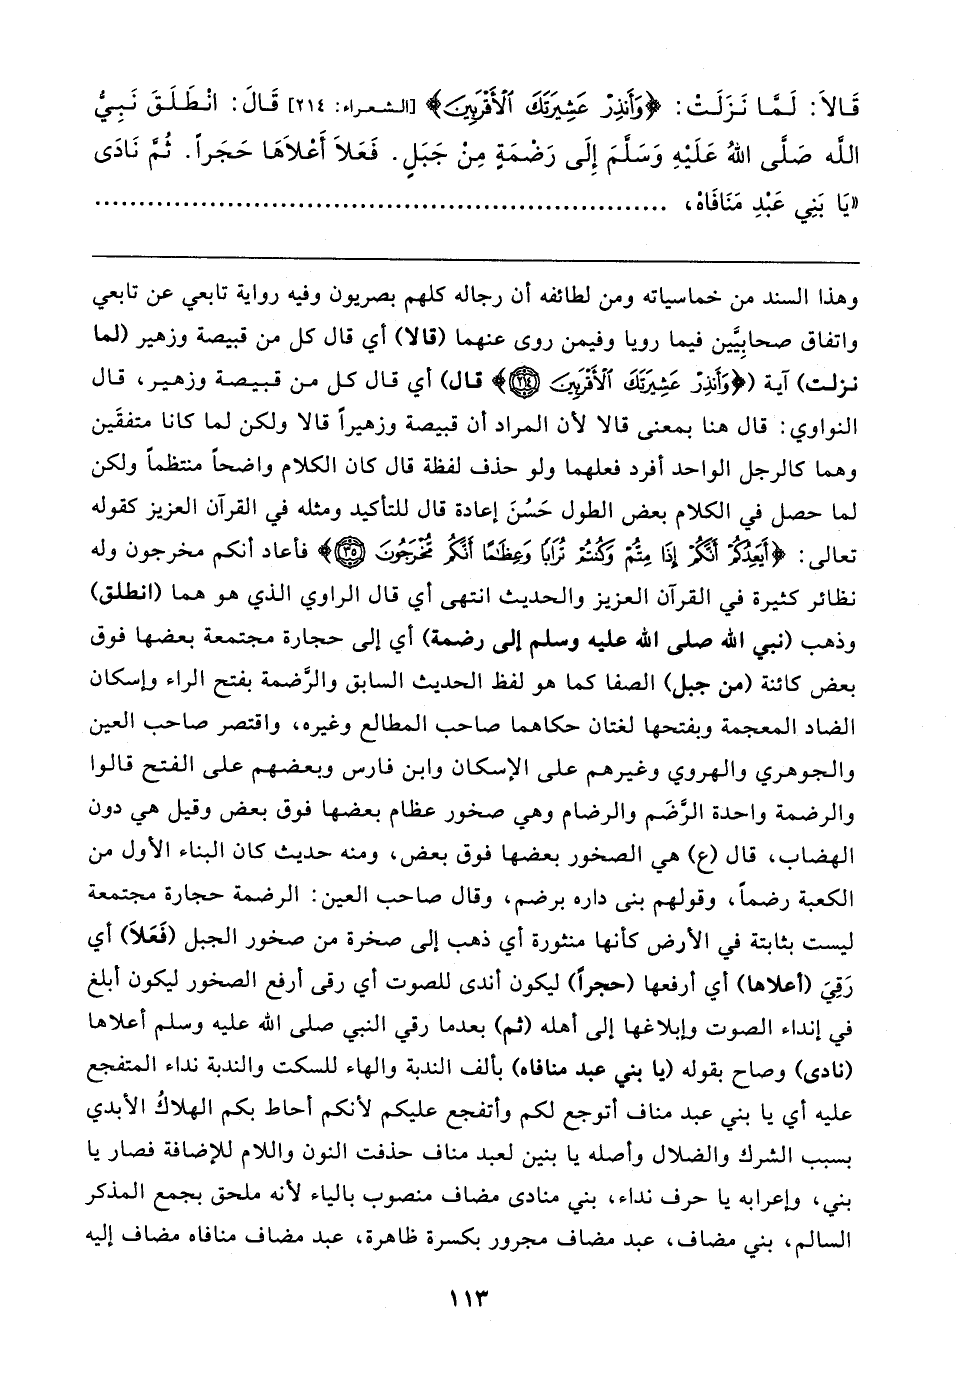 قَالاَ: لَمَّا نَزَلَتْ: ﴿وَأَنذِرْ عَشِيرَتَكَ ٱلْأَقْرَبِينَ﴾ [الشعراء: ٢١٤] قَالَ: انْطَلَقَ نَبِيُّ
اللَّه صَلَّى اللهُ عَلَيْهِ وَسَلَّمَ إِلَى رَضْمَةٍ مِنْ جَبَلٍ. فَعَلاَ أَعْلاَهَا حَجَراً. ثُمَّ نَادَى
«يَا بَنِي عَبْدِ مَنَافَاهْ، ................................................................
وهذا السند من خماسياته ومن لطائفه أن رجاله كلهم بصريون وفيه رواية تابعي عن تابعي
واتفاق صحابِيَّين فيما رويا وفيمن روى عنهما (قالا) أي قال كل من قبيصة وزهير (لما
نزلت) آية (﴿وَأَنذِرْ عَشِيرَتَكَ ٱلْأَقْرَبِينَ ٢١٤﴾ قال) أي قال كل من قبيصة وزهير، قال
النواوي: قال هنا بمعنى قالا لأن المراد أن قبيصة وزهيراً قالا ولكن لما كانا متفقَين
وهما كالرجل الواحد أفرد فعلهما ولو حذف لفظة قال كان الكلام واضحاً منتظماً ولكن
لما حصل في الكلام بعض الطول حَسُنَ إعادة قال للتأكيد ومثله في القرآن العزيز كقوله
تعالى: ﴿أَيَعِدُكُمْ أَنَّكُمْ إِذَا مِتُّمْ وَكُنتُمْ تُرَابًا وَعِظَٰمًا أَنَّكُم مُّخْرَجُونَ ٣٥﴾ فأعاد أنكم مخرجون وله
نظائر كثيرة في القرآن العزيز والحديث انتهى أي قال الراوي الذي هو هما (انطلق)
وذهب (نبي الله صلى الله عليه وسلم إلى رضمة) أي إلى حجارة مجتمعة بعضها فوق
بعض كائنة (من جبل) الصفا كما هو لفظ الحديث السابق والرَّضمة بفتح الراء وإسكان
الضاد المعجمة وبفتحها لغتان حكاهما صاحب المطالع وغيره، واقتصر صاحب العين
والجوهري والهروي وغيرهم على الإسكان وابن فارس وبعضهم على الفتح قالوا
والرضمة واحدة الرَّضَم والرضام وهي صخور عظام بعضها فوق بعض وقيل هي دون
الهضاب، قال (ع) هي الصخور بعضها فوق بعض، ومنه حديث كان البناء الأول من
الكعبة رضماً، وقولهم بنى داره برضم، وقال صاحب العين: الرضمة حجارة مجتمعة
ليست بثابتة في الأرض كأنها منثورة أي ذهب إلى صخرة من صخور الجبل (فَعَلاَ) أي
رَقِيَ (أعلاها) أي أرفعها (حجراً) ليكون أندى للصوت أي رقى أرفع الصخور ليكون أبلغ
في إنداء الصوت وإبلاغها إلى أهله (ثم) بعدما رقي النبي صلى الله عليه وسلم أعلاها
(نادى) وصاح بقوله (يا بني عبد منافاه) بألف الندبة والهاء للسكت والندبة نداء المتفجع
عليه أي يا بني عبد مناف أتوجع لكم وأتفجع عليكم لأنكم أحاط بكم الهلاكُ الأبدي
بسبب الشرك والضلال وأصله يا بنين لعبد مناف حذفت النون واللام للإضافة فصار يا
بني، وإعرابه يا حرف نداء، بني منادى مضاف منصوب بالياء لأنه ملحق بجمع المذكر
السالم، بني مضاف، عبد مضاف مجرور بكسرة ظاهرة، عبد مضاف منافاه مضاف إليه
١١٣